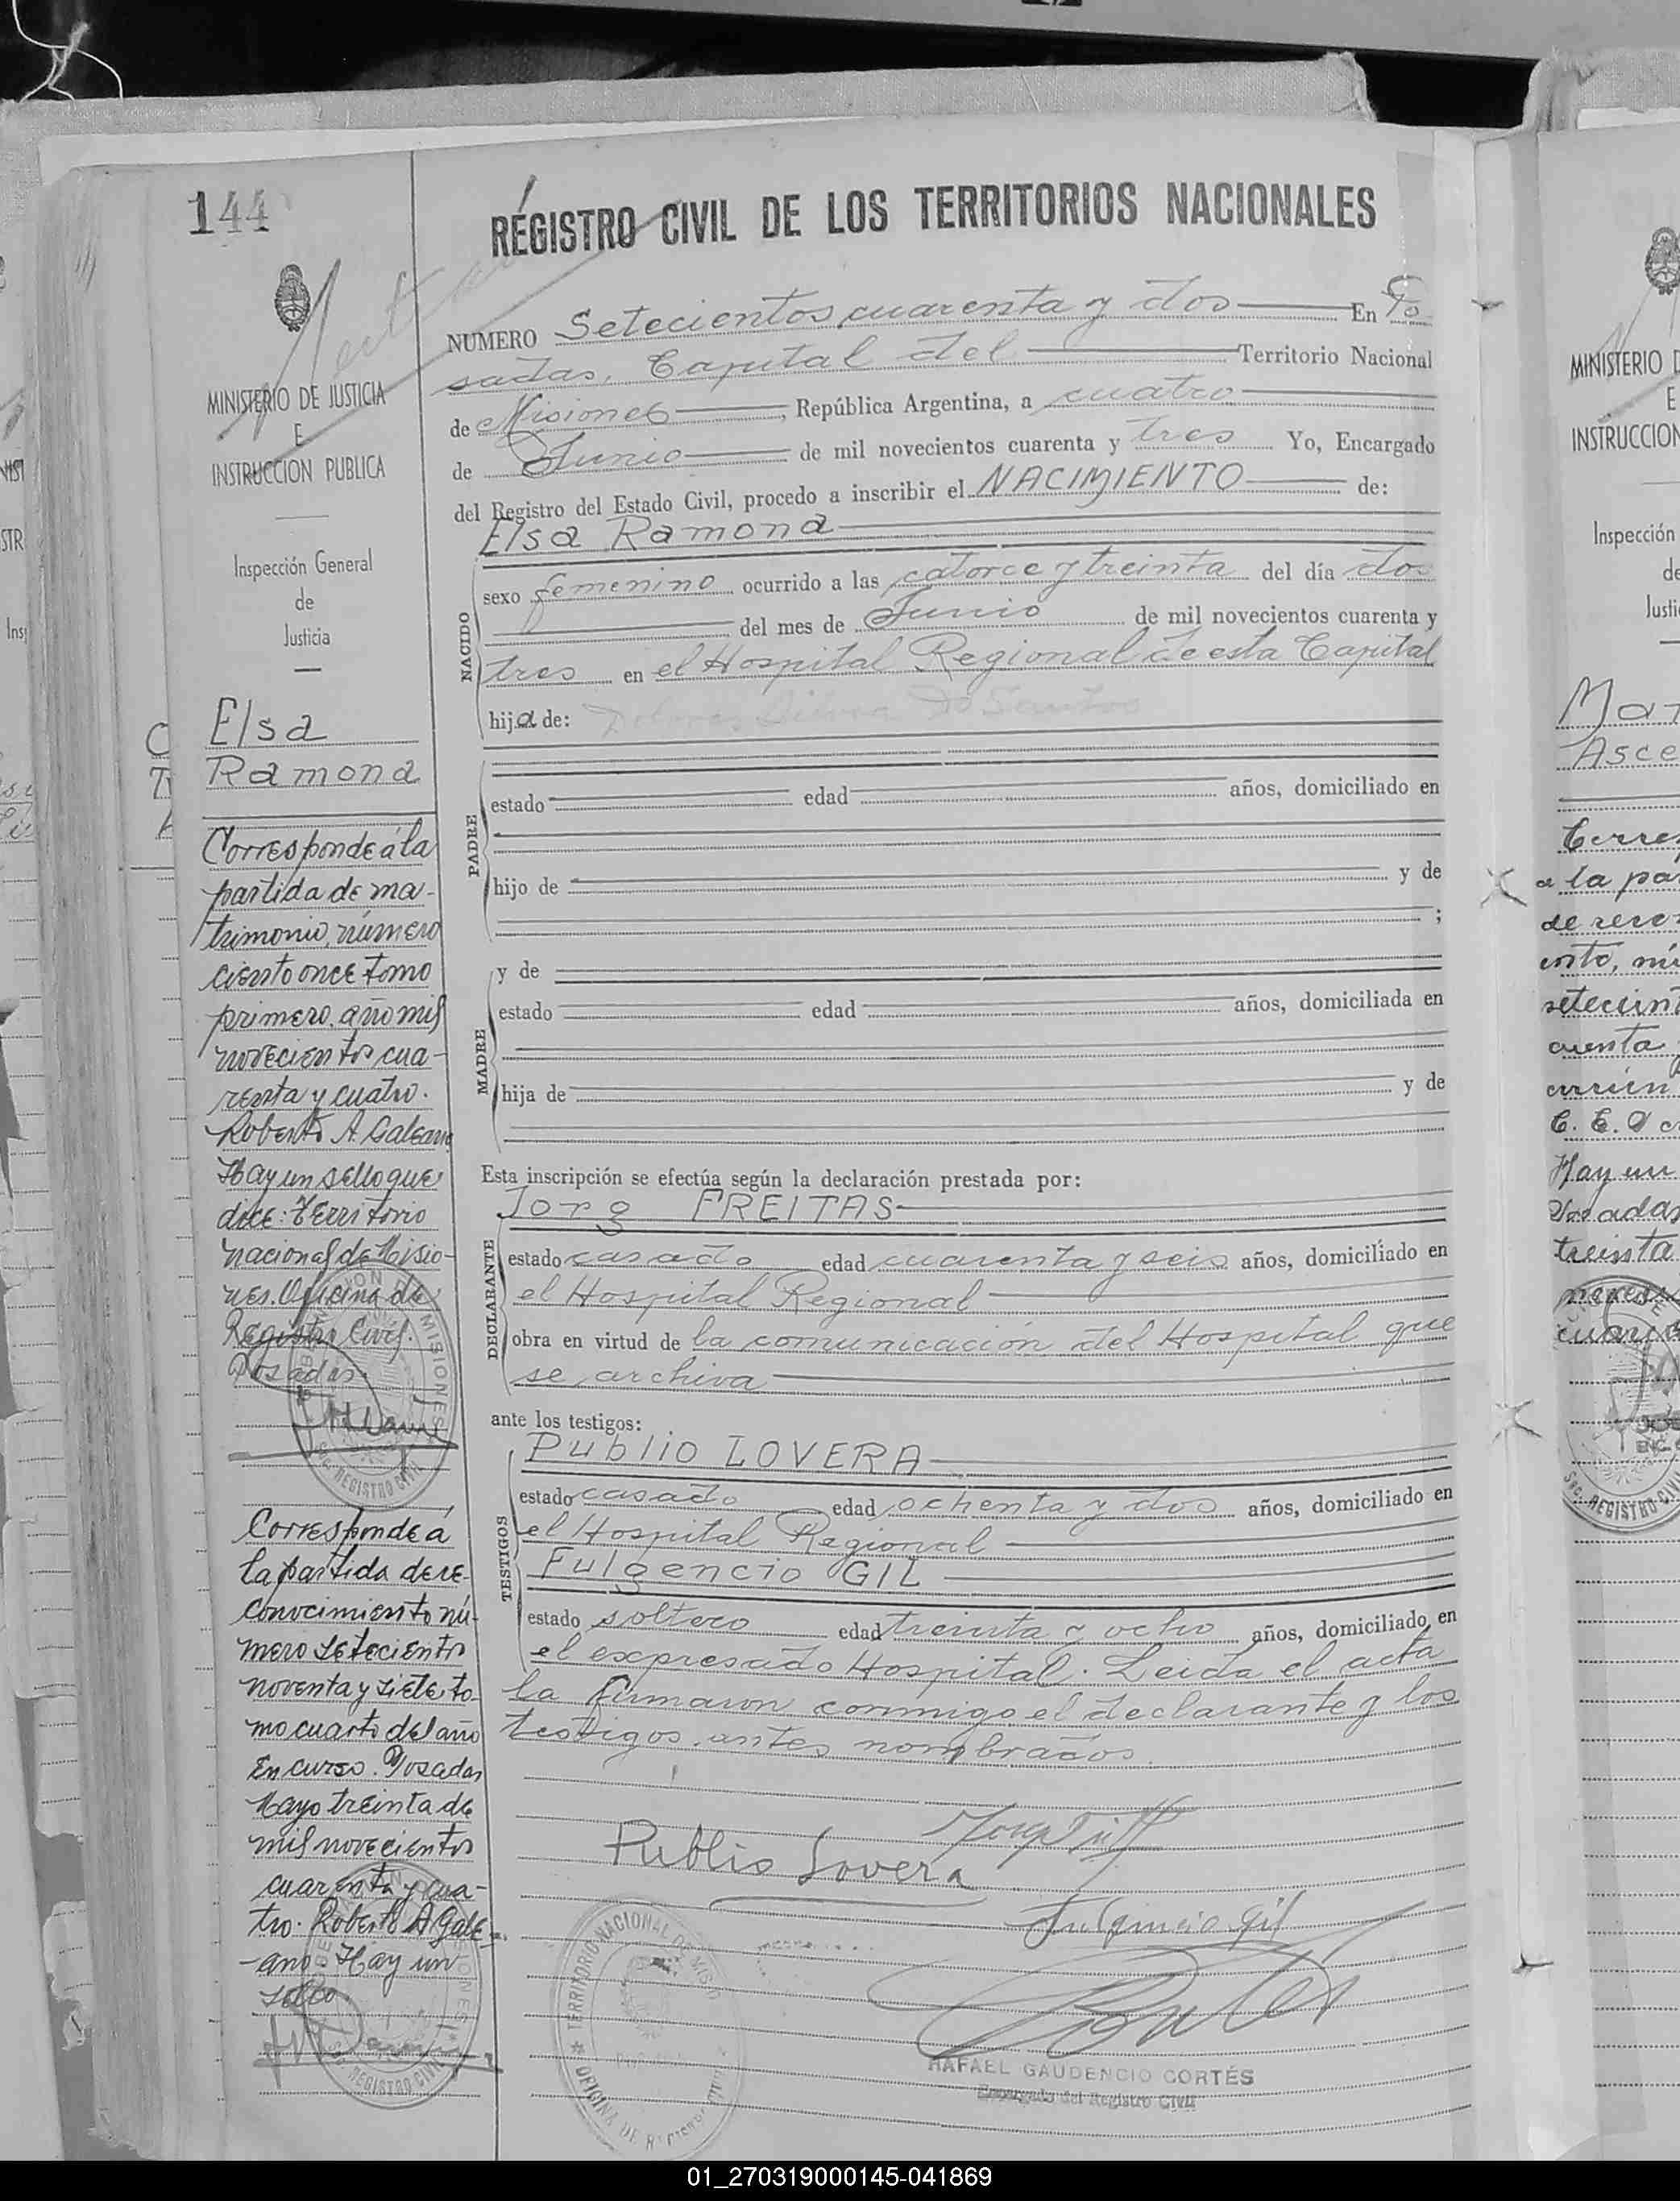 144
REGISTRO CIVIL DE LOS TERRITORIOS NACIONALES
MINISTERIO DE JUSTICIA
E
INSTRUCCION PUBLICA
Inspección General
de
Justicia
Elsa
Ramona
Corresponde á la
partida de ma-
trimonio, número
ciento once tomo
primero, año mil
novecientos cua-
renta y cuatro.
Roberto A. Galeano
Hay un sello que
dice: Territorio
nacional de Misio-
nes. Oficina de
Registro Civil.
Posadas.
Corresponde á
la partida de re-
conocimiento nú-
mero setecientos
noventa y siete to-
mo cuarto del año
en curso. Posadas
Mayo treinta de
mil novecientos
cuarenta y cua-
tro. Roberto A Gale-
-ano Hay un
sello
NUMERO Setecientos cuarenta y dos En Po
sadas, Capital del Territorio Nacional
de Misiones, República Argentina, a cuatro
de Junio de mil novecientos cuarenta y tres Yo, Encargado
del Registro del Estado Civil, procedo a inscribir el NACIMIENTO de:
Elsa Ramona
NACIDO
sexo femenino ocurrido a las catorce y treinta del día dos
del mes de Junio de mil novecientos cuarenta y
tres en el Hospital Regional de esta Capital
hija de: Do Santos
PADRE
estado edad años, domiciliado en
hijo de y de
;
MADRE
y de
estado edad años, domiciliada en
hija de y de
Esta inscripción se efectúa según la declaración prestada por:
DECLARANTE
Jorg FREITAS
estado casado edad cuarenta y seis años, domiciliado en
el Hospital Regional
obra en virtud de la comunicación del Hospital que
se archiva
ante los testigos:
TESTIGOS
Publio LOVERA
estado casado edad ochenta y dos años, domiciliado en
el Hospital Regional
Fulgencio GIL
estado soltero edad treinta y ocho años, domiciliado en
el expresado Hospital. Leida el acta
la firmaron conmigo el declarante y los
testigos antes nombrados.
Publio Lovera
Fulgencio Gil
TERRITORIO NACIONAL DE MISIONES
OFICINA DE REGISTRO CIVIL
RAFAEL GAUDENCIO CORTÉS
Encargado del Registro Civil
MINISTERIO D
E
INSTRUCCION
Inspección
de
Justi
Mar
Asce
a la pa
Hay un
treinta
01_270319000145-041869